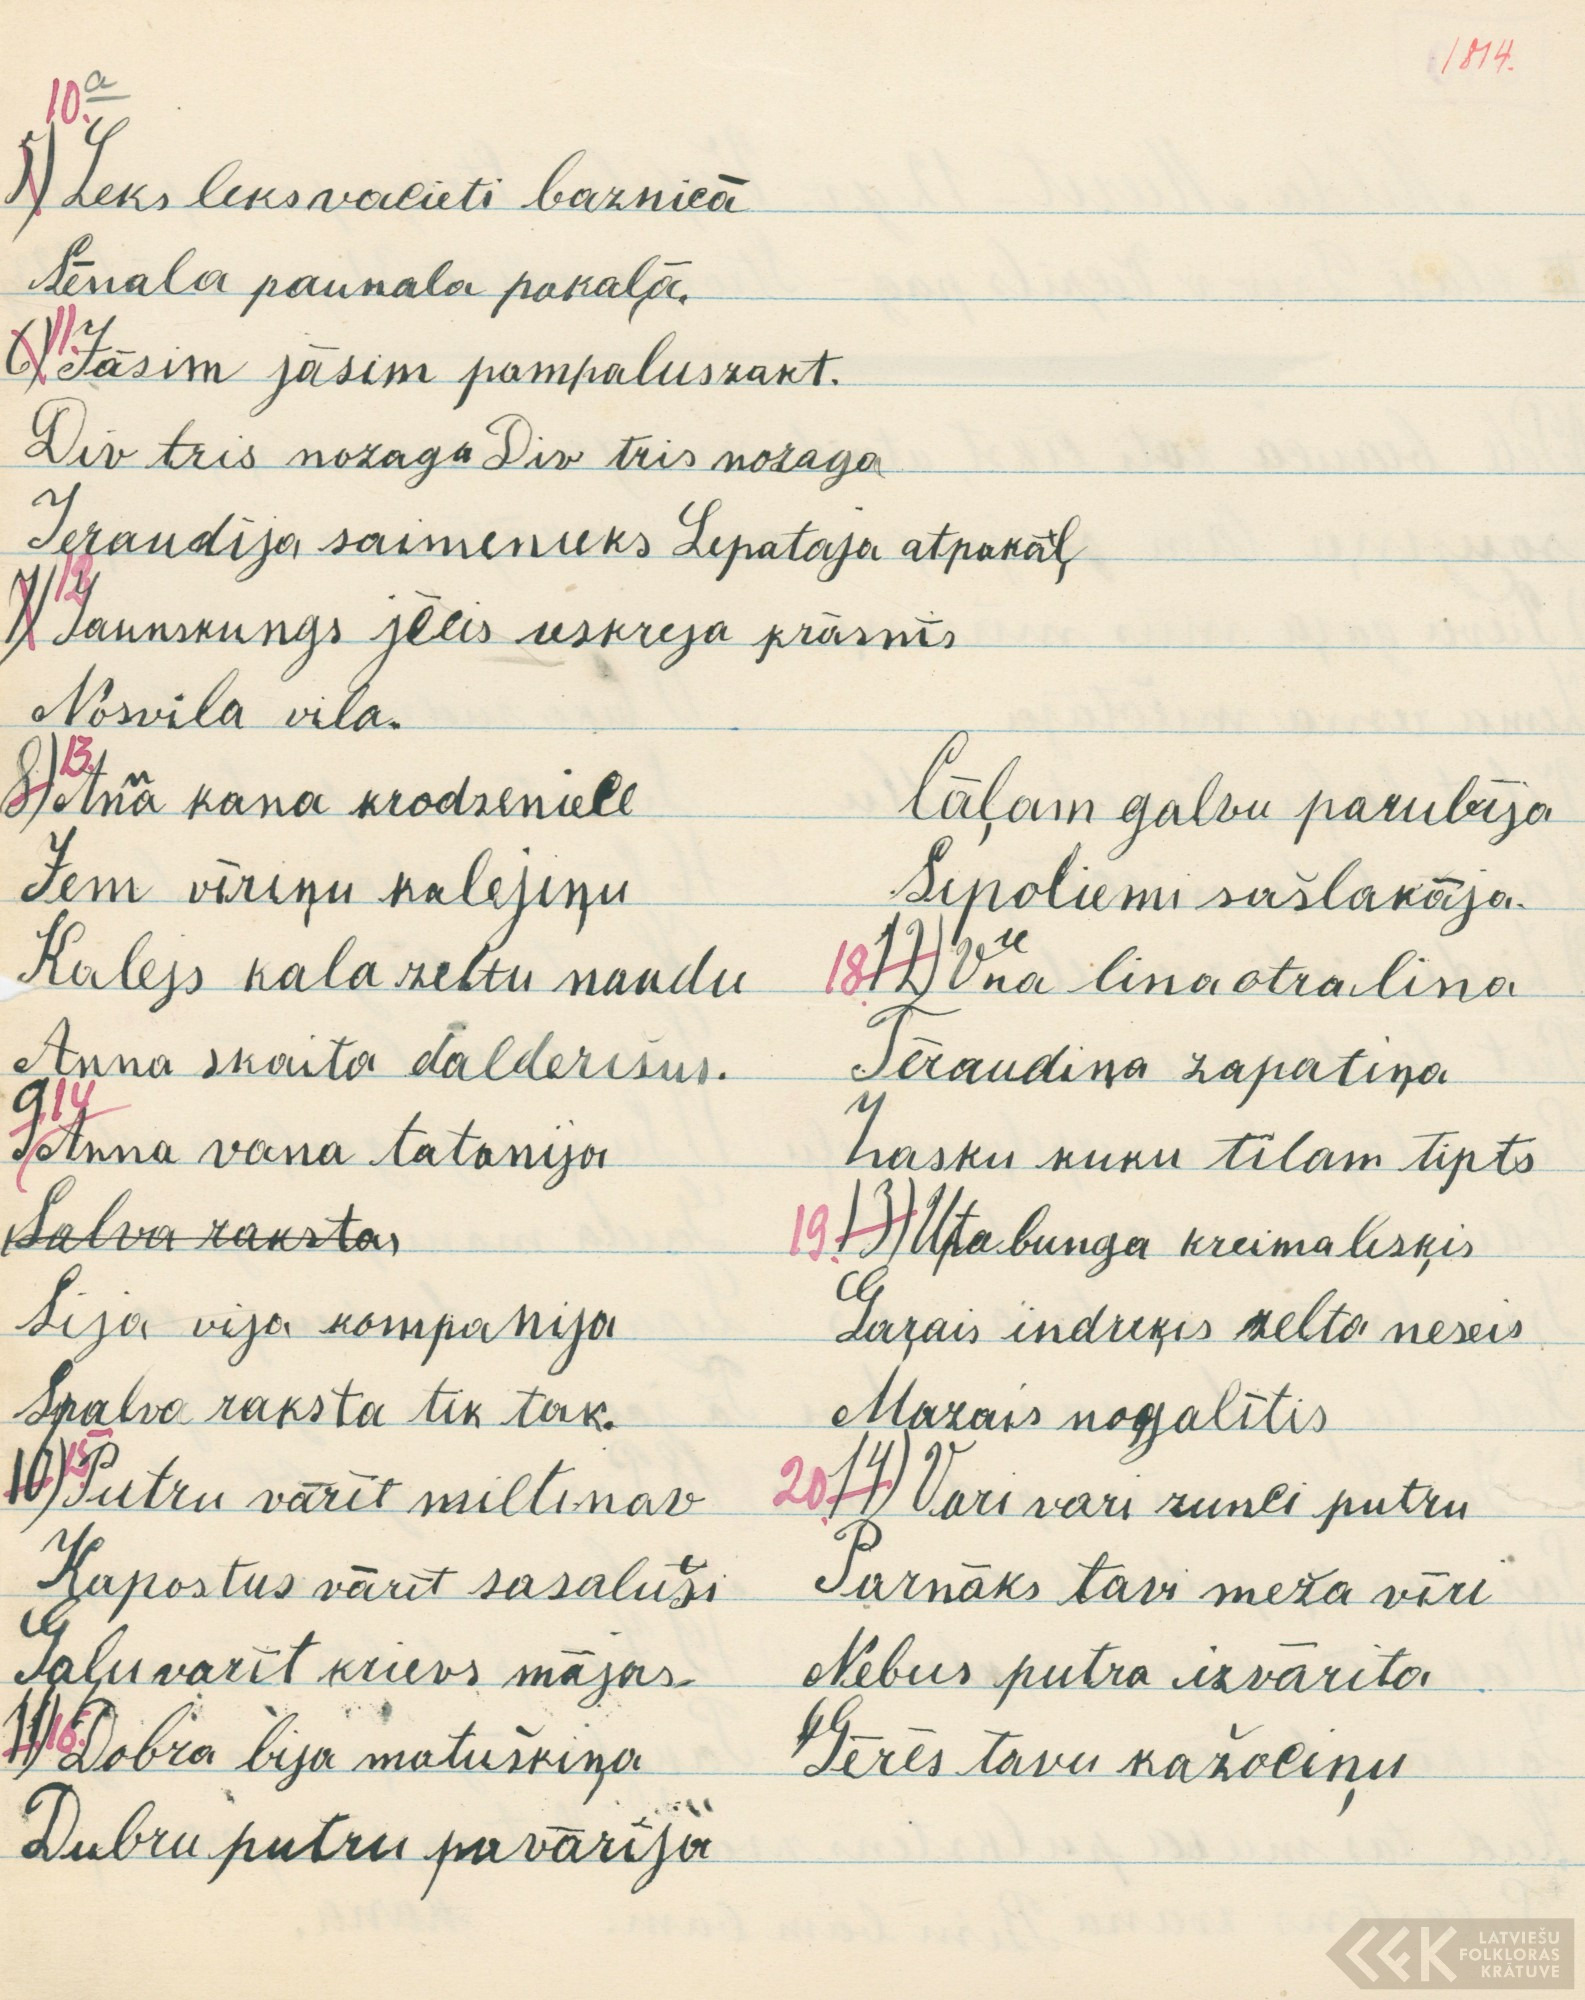 1814.
10.a
5) Leks leks vacieti baznicā
Sēnala paunala pakaļā.
11.
6) Jāsim jāsim pampaluszakt.
Div tris nozaga Div tris nozaga
Ieraudīja saimenieks Lepataja atpakāļ
12
7) Jaunskungs jēcis uskreja krāsnīs
Nosvila vila.
13.
8) Anna kana krodzeniece
Jem vīriņu kalejiņu
Kalejs kala zeltu naudu
Anna skaita dālderišus.
9) 14
Anna vana tatanija
Salva raksta
Sija vija kompanija
Spalva raksta tik tak.
15
10) Putru vārīt miltinav
Kapostus vārīt sasaluši
Gaļu varīt krievs mājas
11) 16. Dobra bija matuškiņa
Dubru putru pavārīja
Cāļam galvu parubīja
Sipoliemi sašlakāja.
18. 12) Viena lina otra lina
Tēraudiņa zapatiņa
Zasku kuku tīlam tipts
19. 13) Upa bunga kreimalesķis
Gaŗais indreķis zelta neseis
Mazais nogalītis
20. 14) Vari vari runci putru
Parnāks tavi meža vīri
Nebus putra izvārita
Gērēs tavu kažociņu
LATVIEŠU
FOLKLORAS
KRĀTUVE